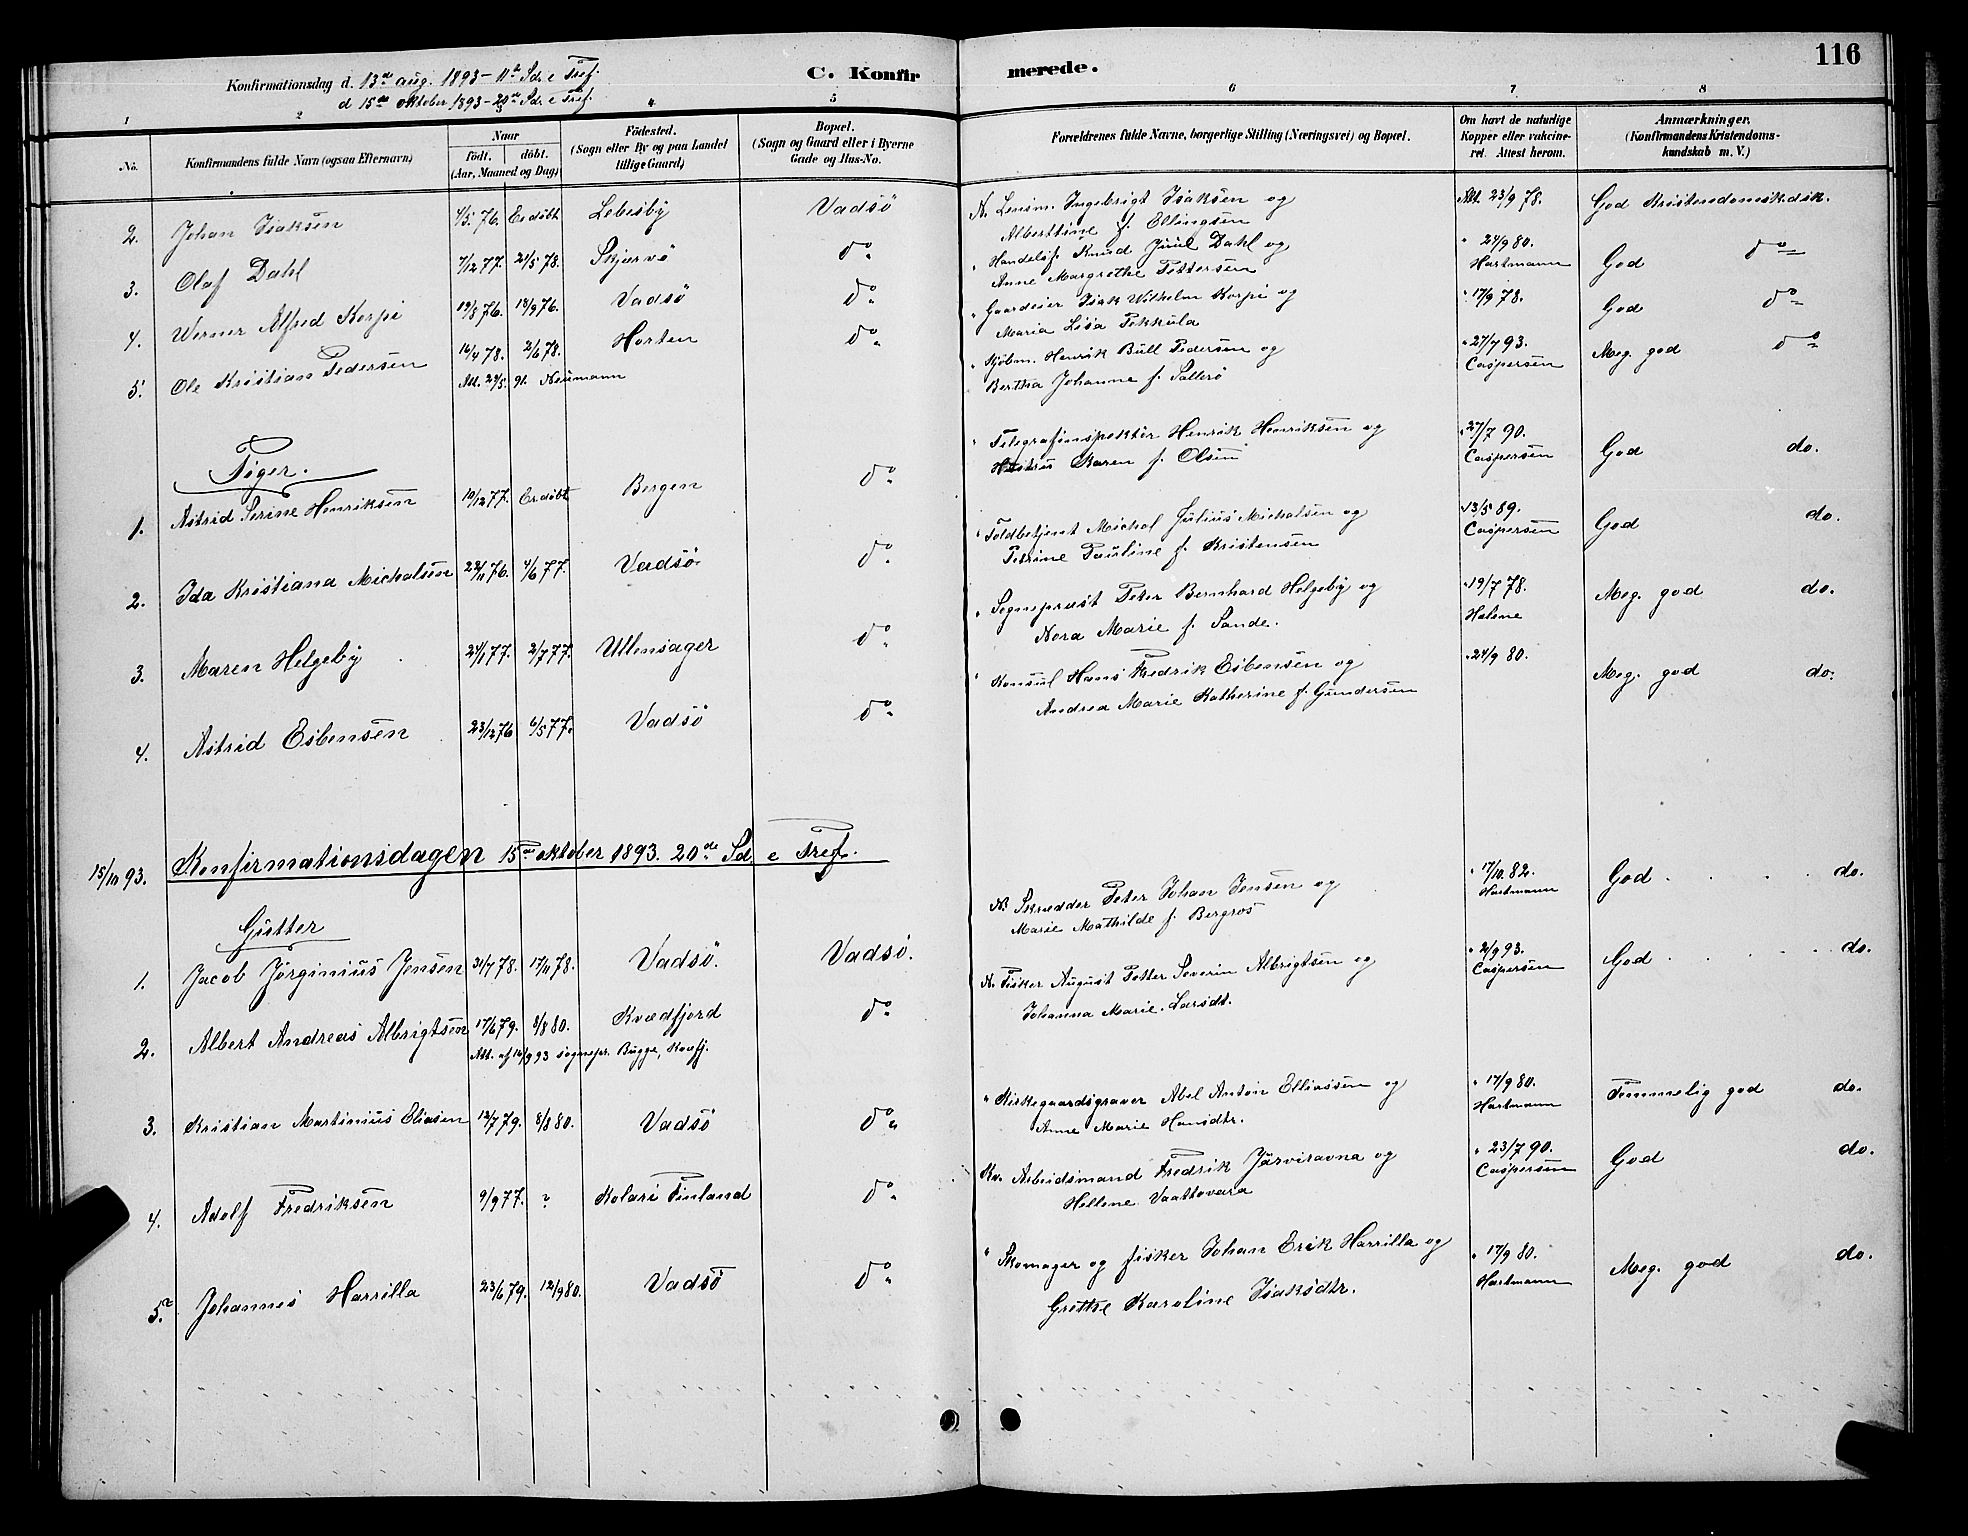 116
Konfirmationsdag d. 13de aug. 1893 - 11te Sd. e Tref.
d 15de oktober 1893 - 20de Sd. e Tref.
C. Konfirmerede.
1 2 3 4 5 6 7 8
No. Konfirmandens fulde Navn (ogsaa Efternavn) Naar født. døbt. (Aar, Maaned og Dag) Fødested. (Sogn eller By og paa Landet tillige Gaard) Bopæl. (Sogn og Gaard eller i Byerne Gade og Hus-No. Forældrenes fulde Navne, borgerlige Stilling (Næringsvei) og Bopæl. Om havt de naturlige Kopper eller vakcineret. Attest herom. Anmærkninger. (Konfirmandens Kristendomskundskab m. V.)
2. Johan Isaksen 4/5 76. Er døbt Lebesby Vadsö N. Lensm. Ingebrigt Isaksen og Att. 23/9 78. God Kristendomskdsk.
Alberttine f. Ellingsen
3. Olaf Dahl 7/12 77. 21/5 78. Skjærvö do " Handelsf. Knud Juul Dahl og " 24/9 80. God do
Anne Margrethe Pettersen Hartmann
4. Werner Alfred Korpi 19/8 76. 18/9 76. Vadsö do " Gaardeier Isak Wilhelm Korpi og " 17/9 78. God do
Maria Lisa Pekkula
5. Ole Kristian Pedersen 16/4 78. 2/6 78. Horten do " Kjöbm. Henrik Bull Pedersen og " 27/7 93. Meg. god do
Att. 29/5. 91. Neumann Bertha Johanne f. Sallerö Caspersen
Piger.
1. Astrid Serine Henriksen 19/12 77. Er döbt Bergen do " Telegrafinspektör Henrik Henriksen og " 27/7 90. God do.
Hustru Karen f. Olsen Caspersen
2. Ida Kristiana Michalsen 22/11 76. 4/6 77. Vadsö. do " Toldbetjent Michal Julius Michalsen og " 13/5 89. God do.
Petrine Pauline f. Kristensen Caspersen
3. Maren Helgeby 24/1 77. 2/7 77. Ullensager do " Sognepræst Peter Bernhard Helgeby og " 19/7 78. Meg. god do.
Nora Marie f. Sande. Halene
4. Astrid Esbensen 23/12 76 6/5 77. Vadsö do " Konsul Hans Fredrik Esbensen og " 24/9 80. Meg. god do.
Andrea Marie Katherine f. Gundersen
15/10 93. Konfirmationsdagen 15de oktober 1893. 20de Sd e Tref.
Gutter
1. Jacob Jörginius Jensen 31/7 78. 17/11 78. Vadsö. Vadsö. N. Skrædder Peter Johan Jensen og " 17/10. 82. God do.
Marie Mathilde f. Bergros Hartmann
2. Albert Andreas Albrigtsen 17/6 79. 8/8 80. Kvædfjord do N. Fisker August Petter Severin Albrigtsen og " 2/9 93. God do.
Att. af 16/9 93 sognepr. Bugge, Kvæfj. Johanna Marie Larsdt. Caspersen
3. Kristian Martinius Eliasen 12/7 79. 8/8 80. Vadsö do " Kirkegaardsgraver Abel Anton Elliassen og " 17/9 80. Temmelig god do.
Anne Marie Hansdtr. Hartmann
4. Adolf Fredriksen 9/9 77. ? Kolari Finland do Kv. Arbeidsmand Fredrik Järviravna og " 23/7 90. God do.
Hellene Vaattovara Caspersen
5. Johannes Harrilla 23/6 79. 12/9 80. Vadsö do " Skomager og fisker Johan Erik Harrilla og " 17/9 80. Meg. god do.
Grethe Karoline Isaksdtr. Hartmann